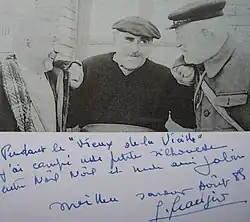 Pendant le "Vieux de la Vieille"
j'ai campé une petite silhouette
entre Noël Noël et mon ami Gabin
meilleur Août 83